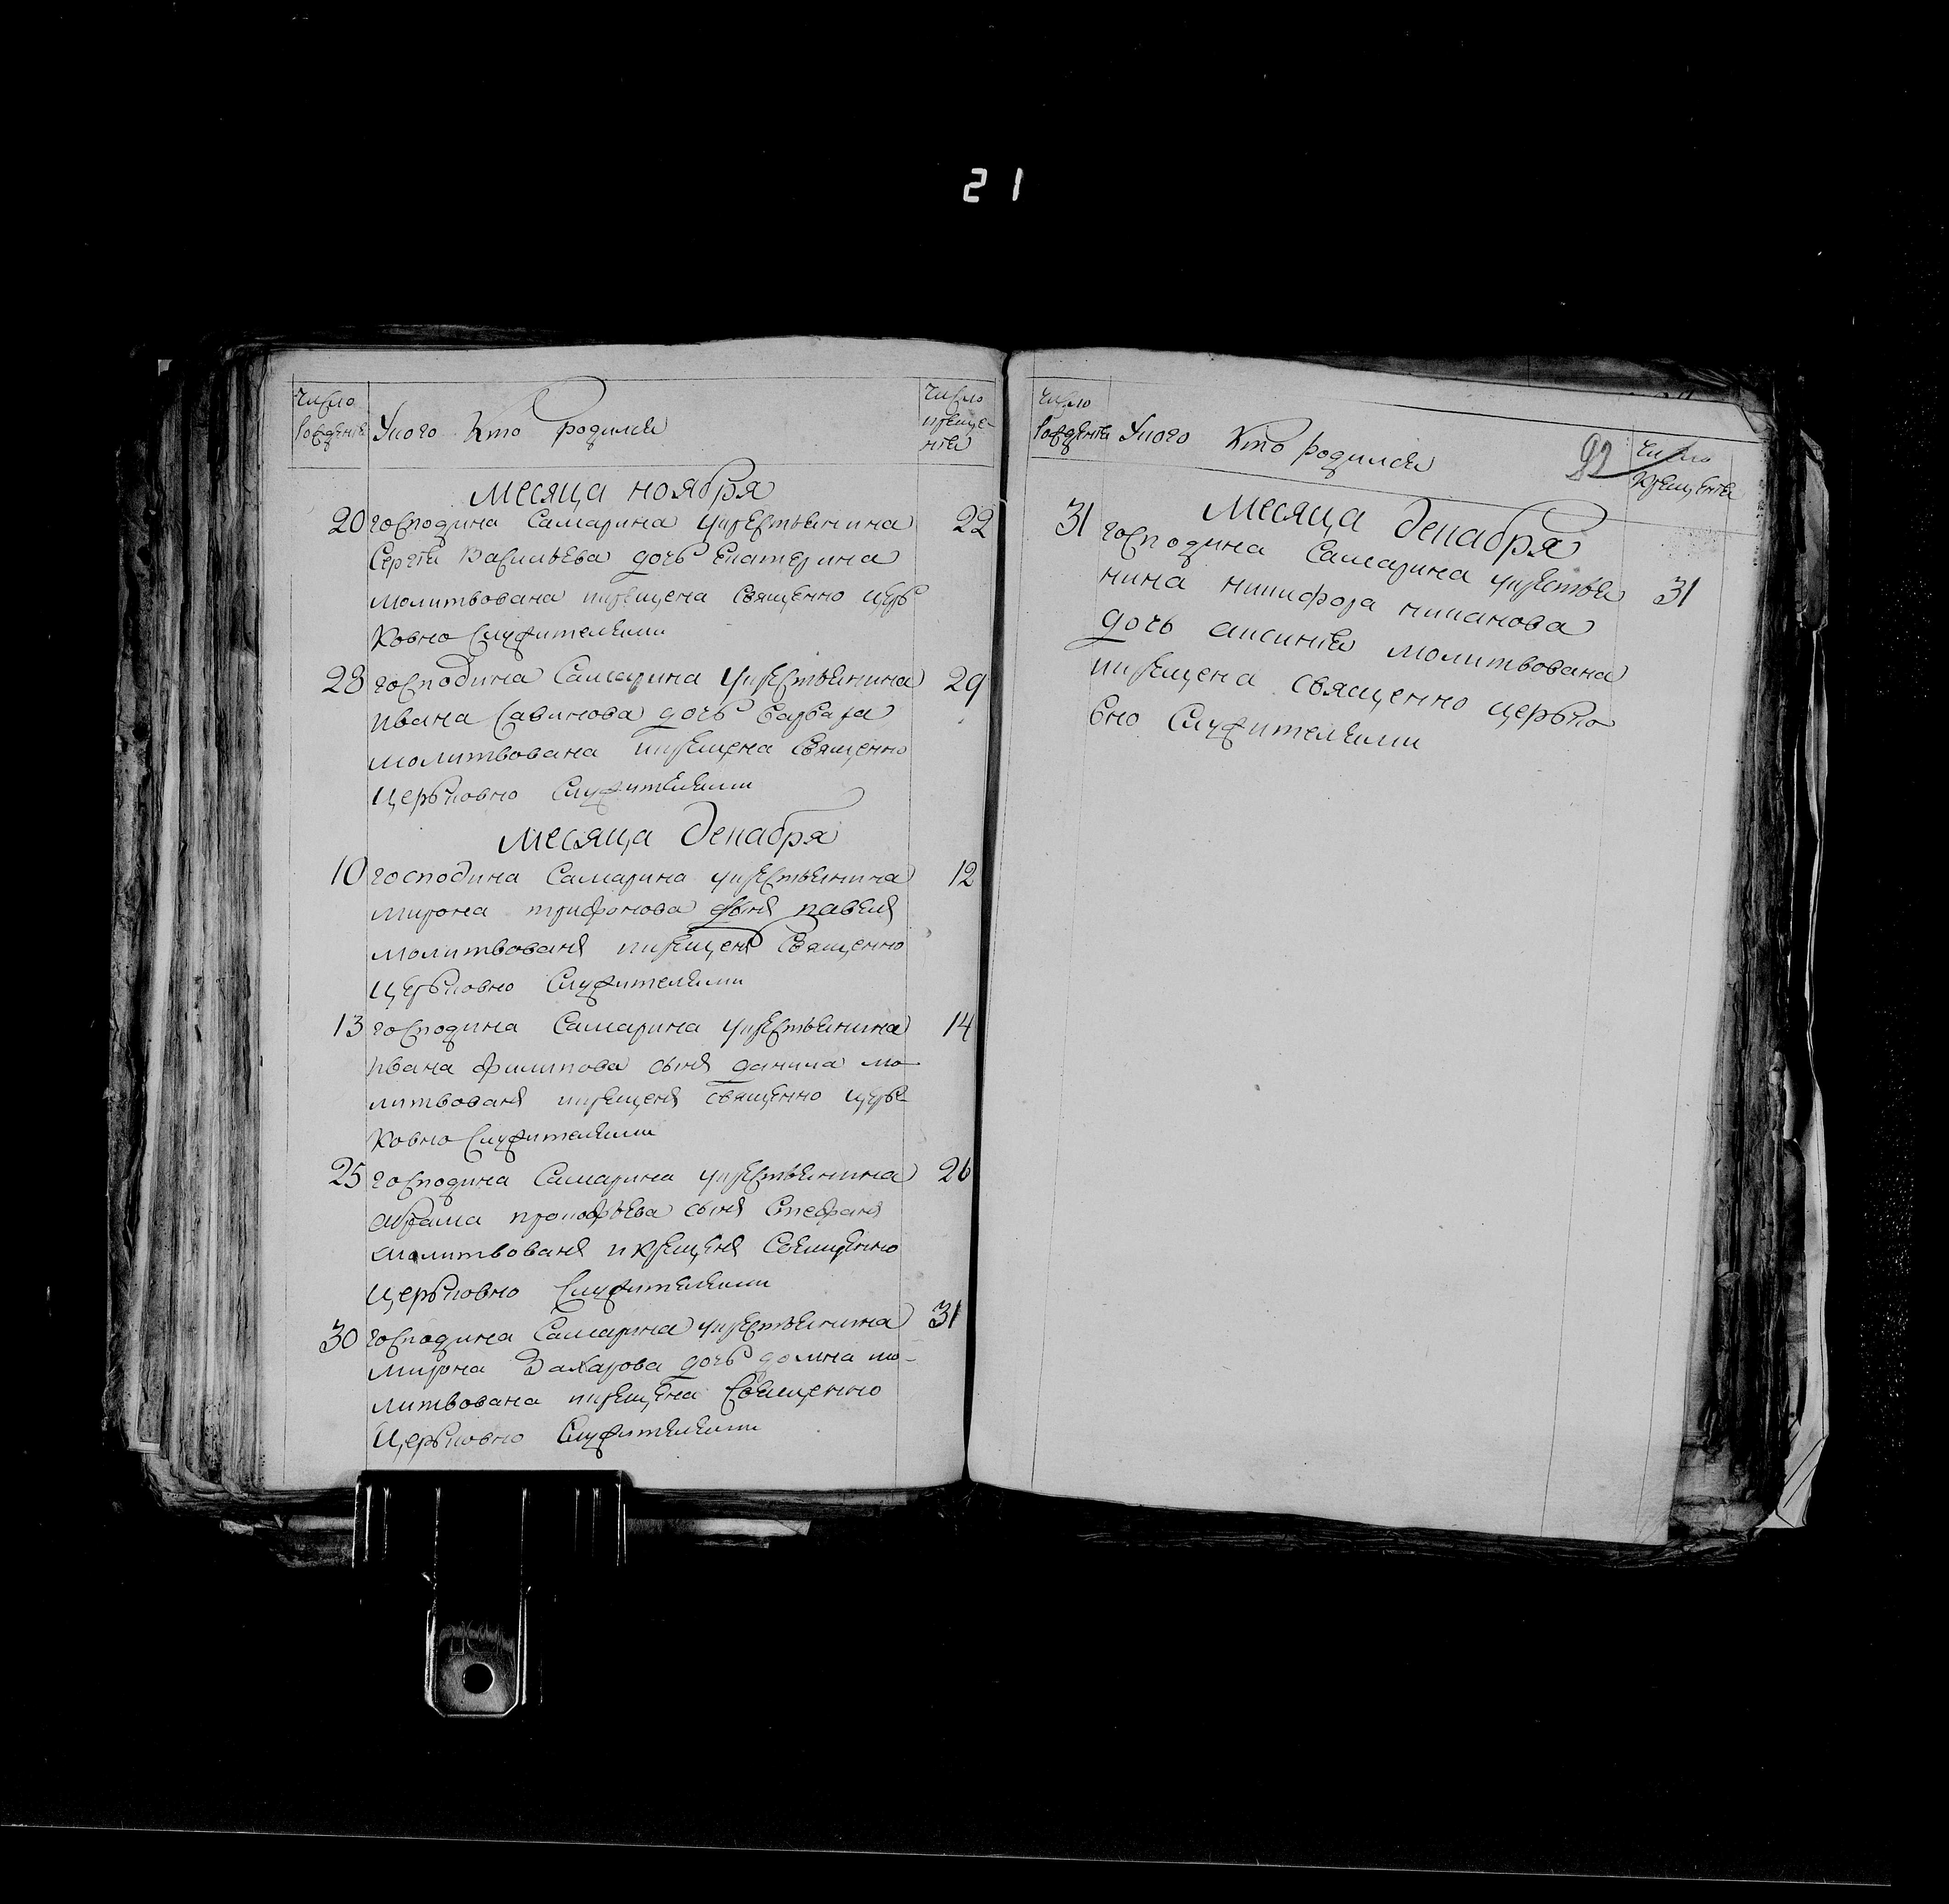 21
Число рожденiя
Укого Кто родился
Число крещенiя
Месяца ноября
20 господина Самарина укрестьянина 22
Сергея Васильева дочь екатерина
молитвована икрещена священно церь
ковно служителями
28 господина Самарина укрестьянина 29
ивана Савинова дочь варвара
молитвована икрещена священно
церьковно служителями
Месяца декабря
10 господина Самарина укрестьянина 12
мирона трифонова сынъ павелъ
молитвованъ икрещенъ священно
церьковно служителями
13 господина Самарина укрестьянина 14
ивана филипова сынъ данила мо-
литвованъ икрещенъ священно церь-
ковно служителями
25 господина Самарина укрестьянина 26
абрама прокофьева сынъ стефанъ
молитвованъ икрещенъ свещенно
церьковно служителями
30 господина Самарина укрестьянина 31
мирона Захарова дочь домна мо-
литвована икрещена свещенно
церьковно служителями
Число рожденiя
Укого Кто родился
92
Число крещенiя
Месяца декабря
31 господина Самарина укрестья 31
нина никифора
дочь аксинiя молитвована
икрещена священно церько
вно служителями